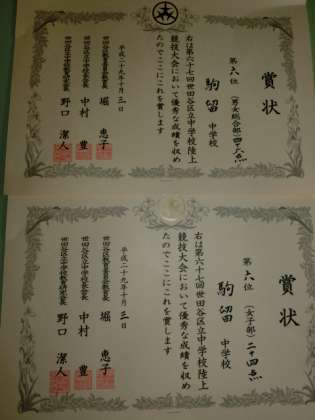 賞状
第六位 (男女総合部)四十六点
駒留 中学校
右は第六十七回世田谷区立中学校陸上
競技大会において優秀な成績を収め
たのでここにこれを賞します
平成二十九年十月三日
世田谷区教育委員会教育長 堀 恵子
世田谷区立中学校長会長 中村 豊
野口 潔人
賞状
第六位 (女子部)二十四点
駒留 中学校
右は第六十七回世田谷区立中学校陸上
競技大会において優秀な成績を収め
たのでここにこれを賞します
平成二十九年十月三日
世田谷区教育委員会教育長 堀 恵子
世田谷区立中学校長会長 中村 豊
野口 潔人